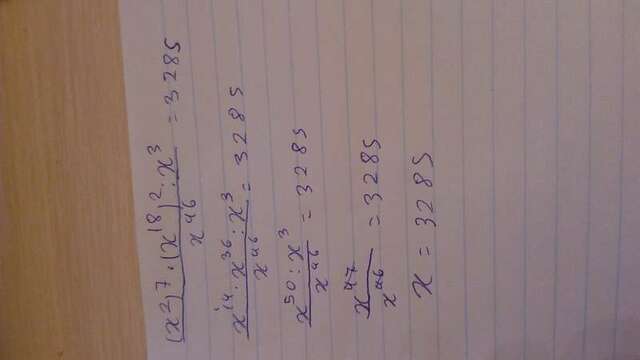 (x²)⁷ · (x¹⁸)² : x³ / x⁴⁶ = 3285
x¹⁴ · x³⁶ : x³ / x⁴⁶ = 3285
x⁵⁰ : x³ / x⁴⁶ = 3285
x⁴⁷ / x⁴⁶ = 3285
x = 3285